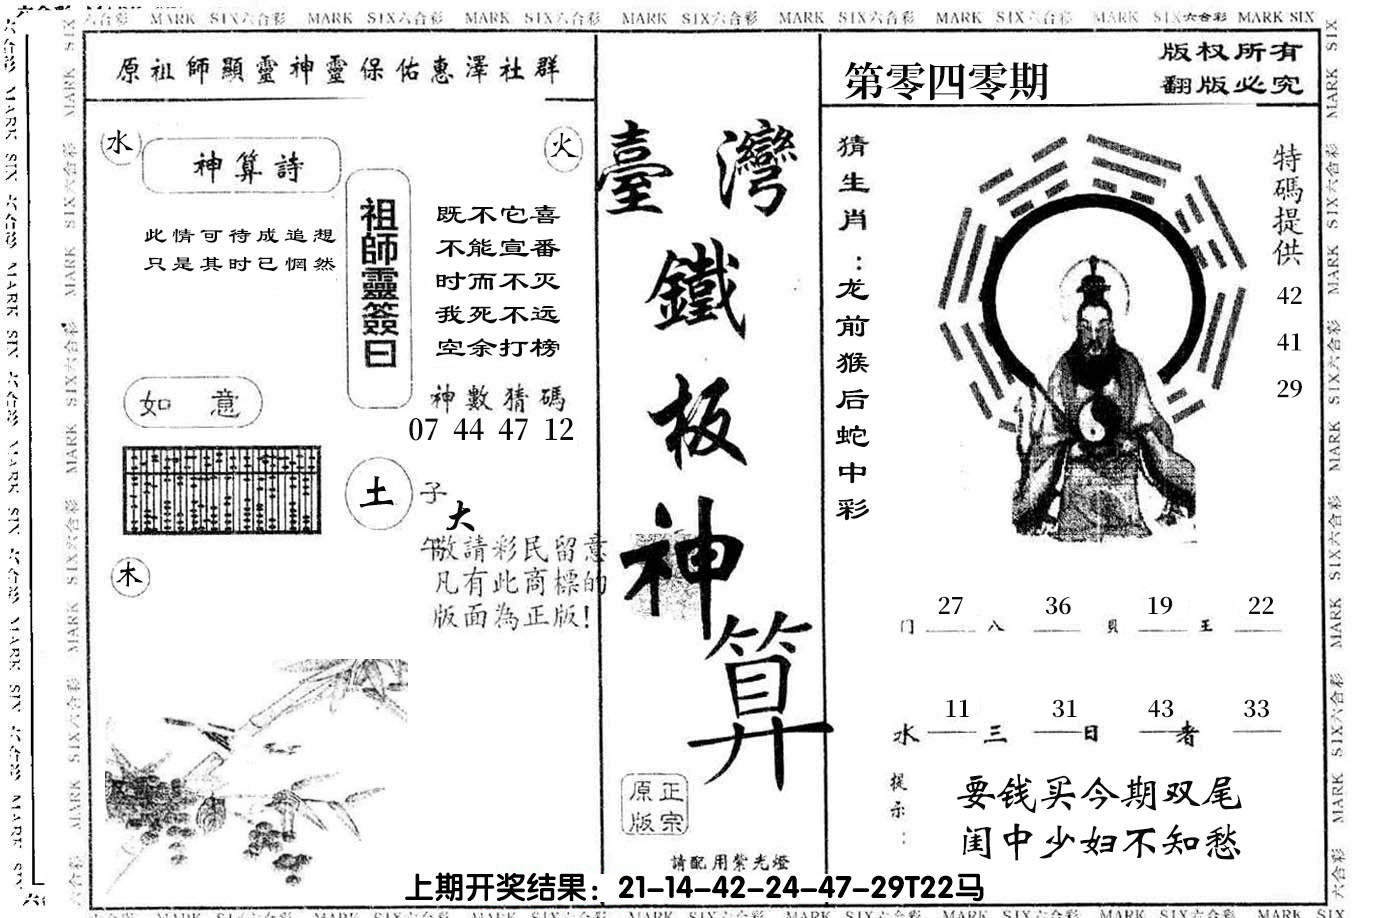 MARK SIX六合彩 MARK SIX六合彩 MARK SIX六合彩 MARK SIX六合彩 MARK SIX六合彩 MARK SIX六合彩 MARK SIX六合彩 MARK SIX
原祖師顯靈神靈保佑惠澤社群
水
神算詩
火
此情可待成追想
只是其时已惘然
祖師靈簽曰
既不它喜
不能宣番
时而不灭
我死不远
空余打榜
神數猜碼
07 44 47 12
如意
土
子
大
午
敬請彩民留意
凡有此商標的
版面為正版!
木
臺灣
鐵
板
神
算
正宗
原版
請配用紫光燈
第零四零期
版权所有
翻版必究
猜生肖:龙前猴后蛇中彩
特碼提供
42
41
29
门 27 八 36 貝 19 王 22
水 11 三 31 日 43 者 33
提示:
要钱买今期双尾
闺中少妇不知愁
上期开奖结果：21-14-42-24-47-29T22马